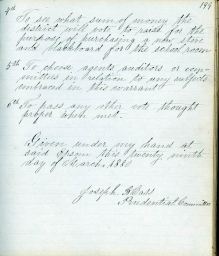 4th
To see what sum of money the
district will vote to raise for the
purpose of purchasing a new stove
and blackboard for the school room
5th To choose agents auditors or com-
mittees in relation to any subjects
embraced in this warrant
6th To pass any other vote thought
proper when met.
Given under my hand at
said Epsom this twenty ninth
day of March, 1880
Joseph
Prudential Committee